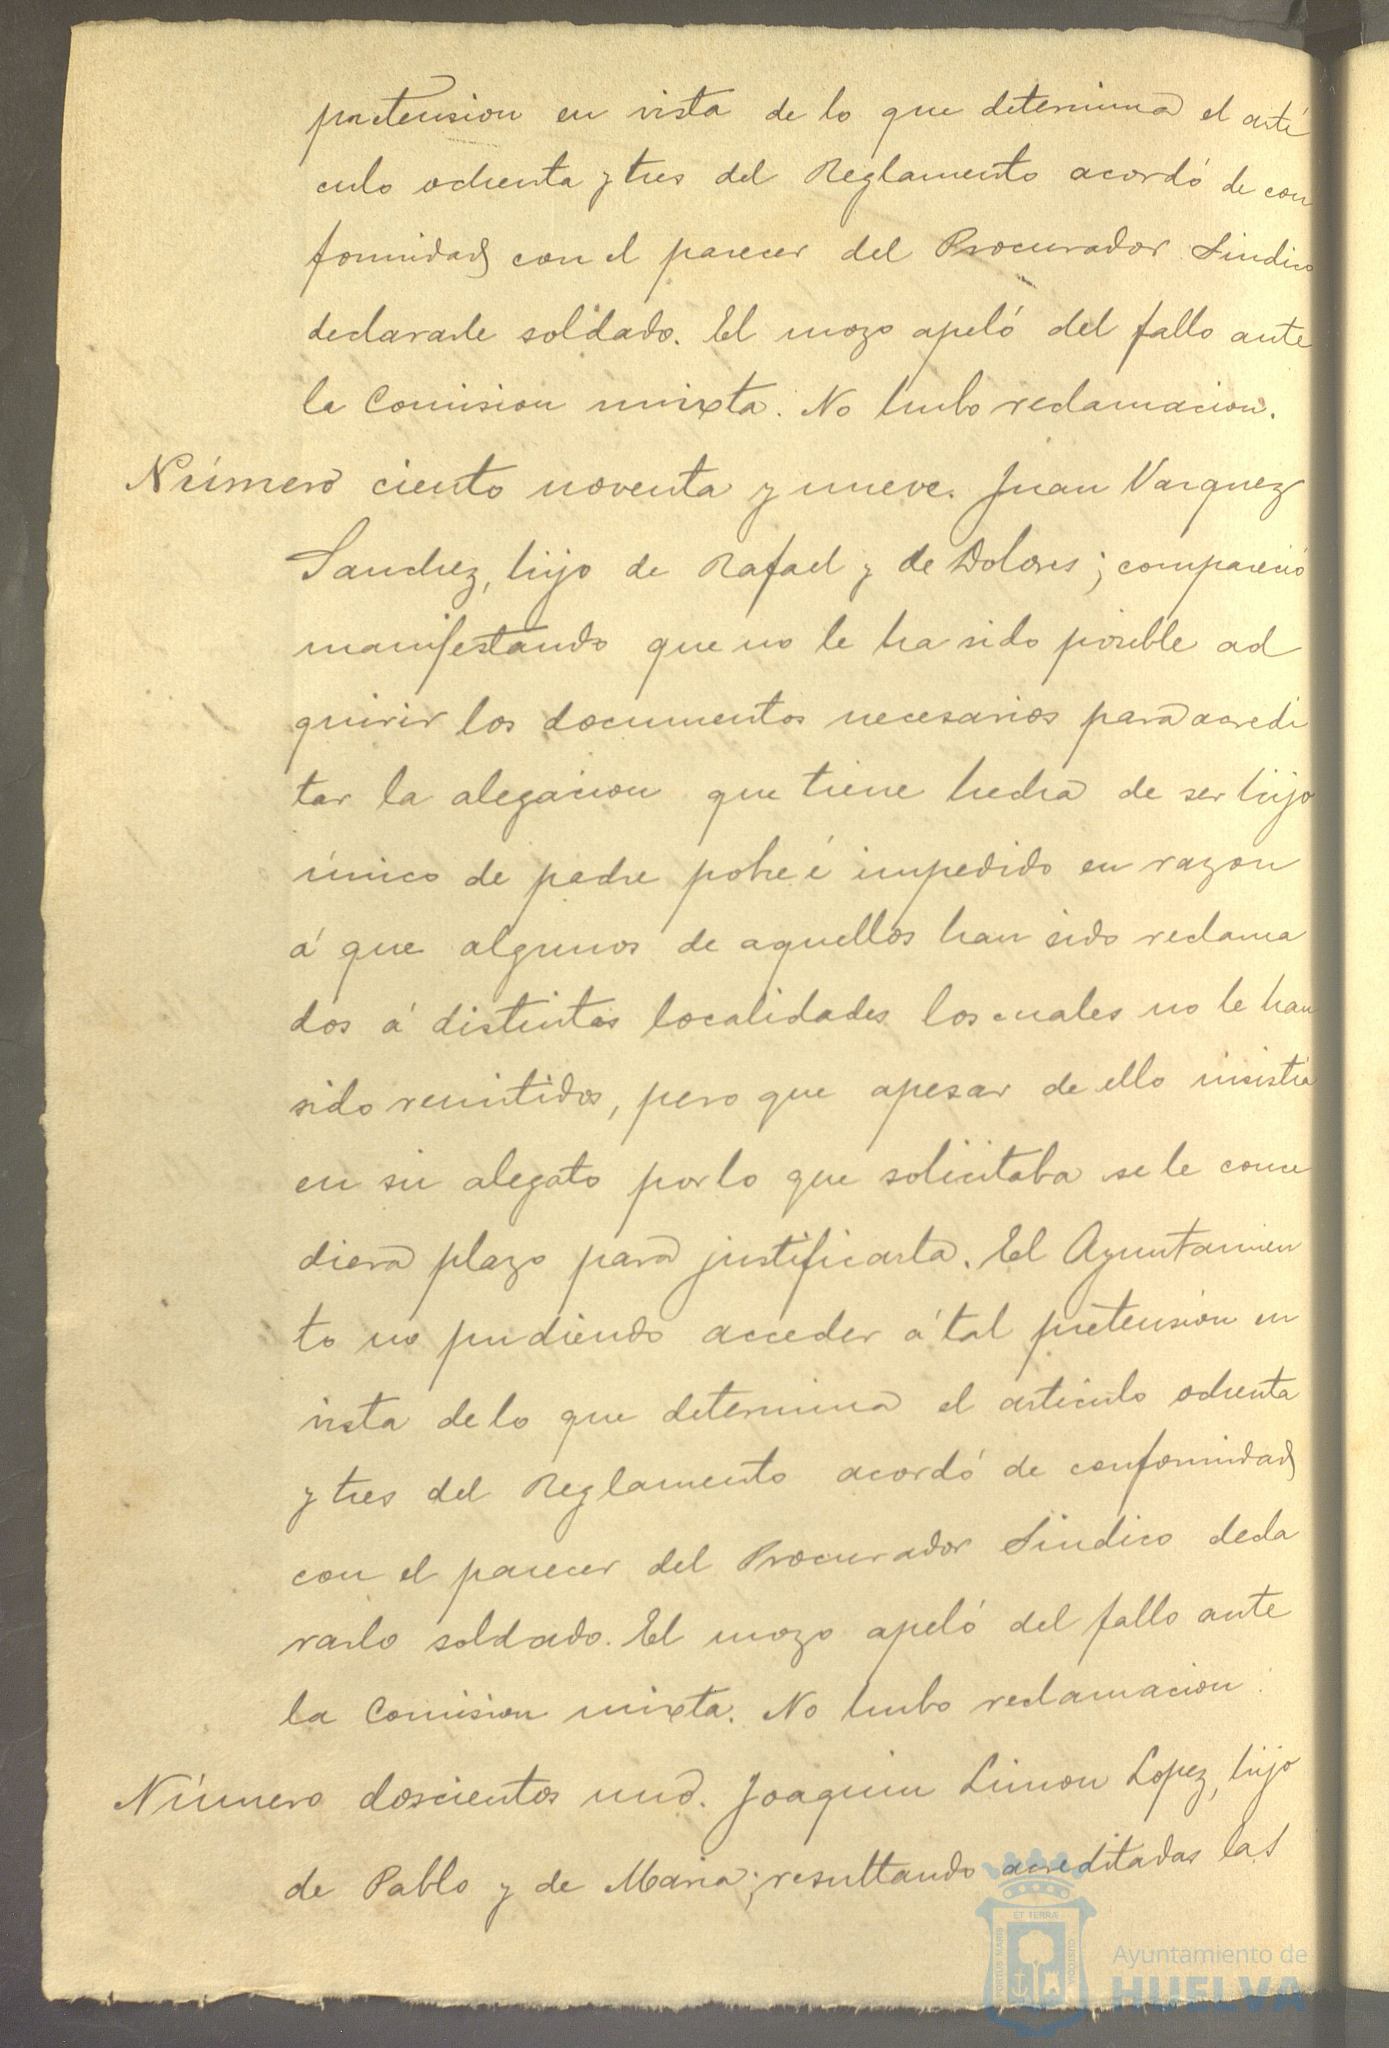 pretension en vista de lo que determina el artí
culo ochenta y tres del Reglamento acordó de con
formidad con el parecer del Procurador Sindico
declararle soldado. El mozo apeló del fallo ante
la Comision mixta. No hubo reclamacion.
Número ciento noventa y nueve. Juan Vazquez
Sanchez, hijo de Rafael y de Dolores; compareció
manifestando que no le ha sido posible ad
quirir los documentos necesarios para acredi
tar la alegacion que tiene hecha de ser hijo
único de padre pobre é impedido en razon
á que algunos de aquellos han sido reclama
dos á distintas localidades los cuales no le han
sido remitidos, pero que apesar de ello insistia
en su alegato por lo que solicitaba se le conce
diera plazo para justificarla. El Ayuntamien
to no pudiendo acceder á tal pretension en
vista de lo que determina el articulo ochenta
y tres del Reglamento acordó de conformidad
con el parecer del Procurador Sindico decla
rarlo soldado. El mozo apeló del fallo ante
la Comision mixta. No hubo reclamacion.
Número doscientos uno. Joaquin Limon Lopez, hijo
de Pablo y de Maria; resultando acreditadas las
PORTUS MARIS ET TERRÆ CUSTODIA
Ayuntamiento de
HUELVA